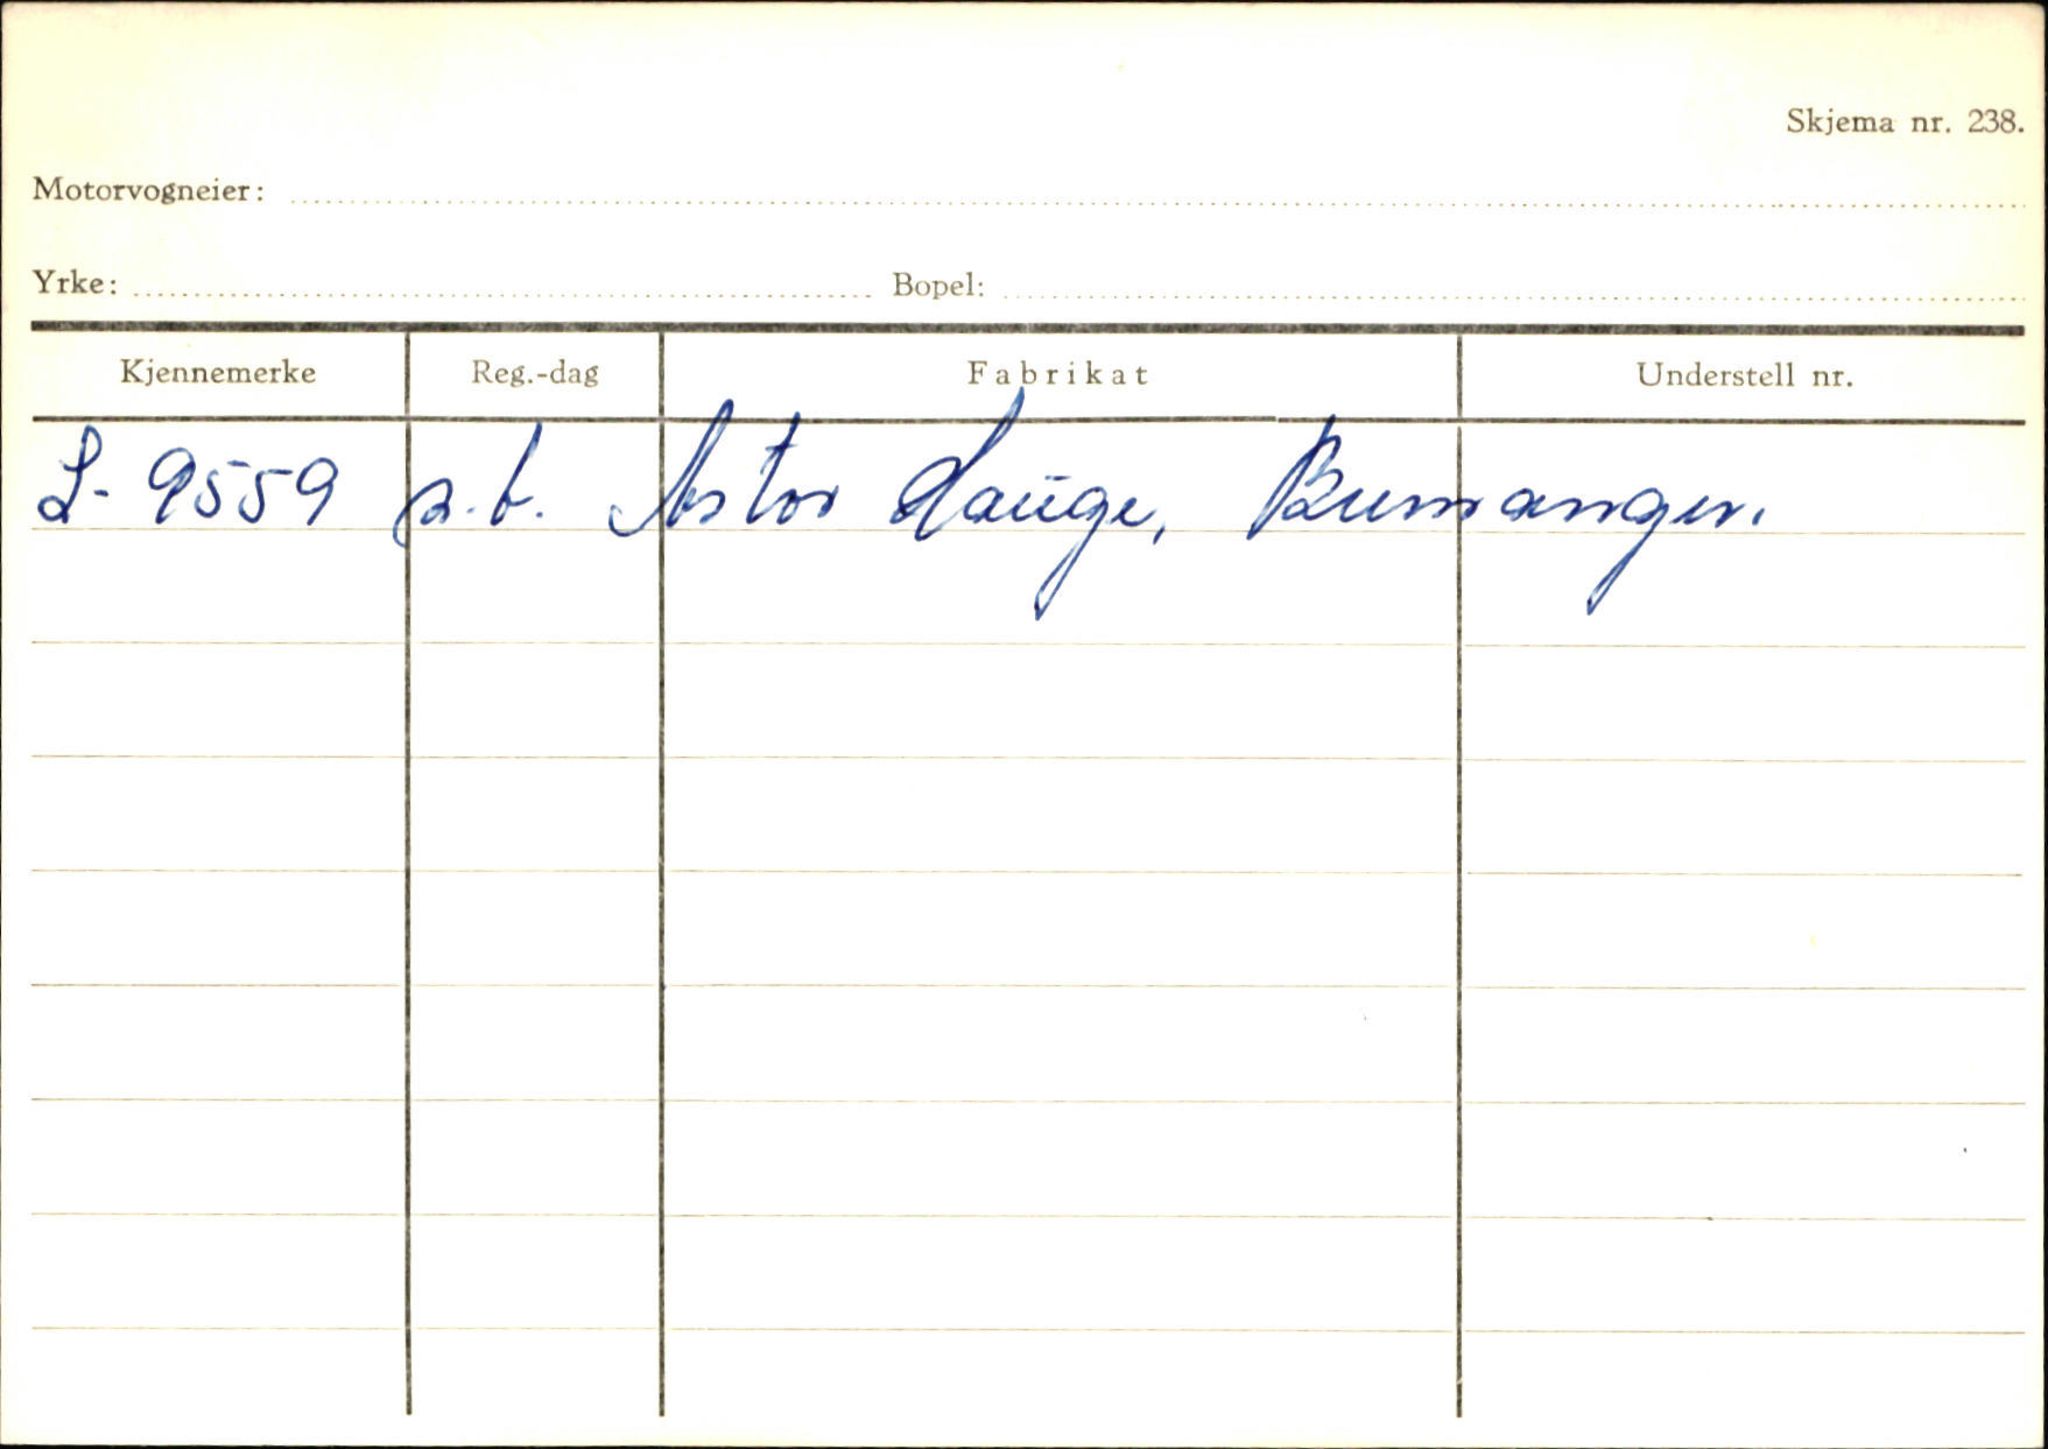 Skjema nr. 238.
Motorvogneier:
Yrke: Bopel:
Kjennemerke Reg.-dag Fabrikat Understell nr.
S- 9559 s.b. Astor Hauge, Bremanger.